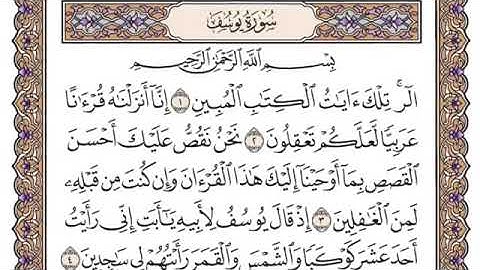 سُورَةُ يُوسُفَ
بِسْمِ ٱللَّهِ ٱلرَّحْمَٰنِ ٱلرَّحِيمِ
الٓرۚ تِلْكَ ءَايَٰتُ ٱلْكِتَٰبِ ٱلْمُبِينِ ١ إِنَّآ أَنزَلْنَٰهُ قُرْءَٰنًا
عَرَبِيًّا لَّعَلَّكُمْ تَعْقِلُونَ ٢ نَحْنُ نَقُصُّ عَلَيْكَ أَحْسَنَ
ٱلْقَصَصِ بِمَآ أَوْحَيْنَآ إِلَيْكَ هَٰذَا ٱلْقُرْءَانَ وَإِن كُنتَ مِن قَبْلِهِۦ
لَمِنَ ٱلْغَٰفِلِينَ ٣ إِذْ قَالَ يُوسُفُ لِأَبِيهِ يَٰٓأَبَتِ إِنِّى رَأَيْتُ
أَحَدَ عَشَرَ كَوْكَبًا وَٱلشَّمْسَ وَٱلْقَمَرَ رَأَيْتُهُمْ لِى سَٰجِدِينَ ٤